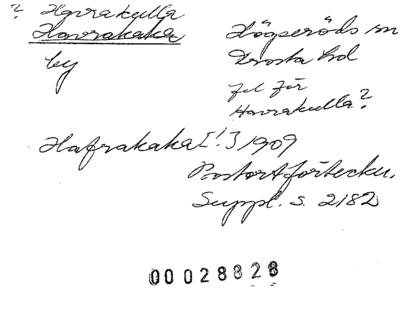 ? Havrakulla
Havrakaka
by
Högseröds sn
Frosta hd
fel för
Havrakulla?
Hafrakaka [!] 1909
Postortförteckn.
Suppl. s. 2182
00028828